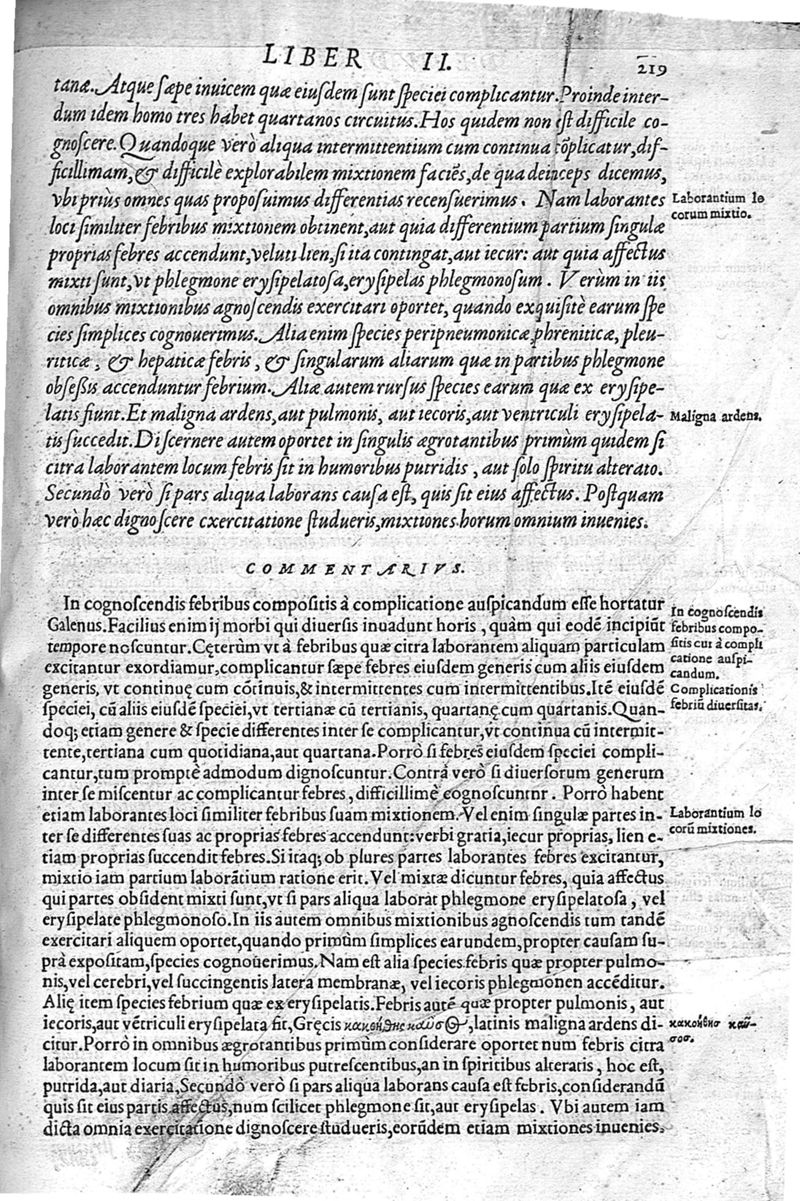 LIBER II. 219
tanæ. Atque sæpe inuicem quæ eiusdem sunt speciei complicantur. Proinde inter-
dum idem homo tres habet quartanos circuitus. Hos quidem non est difficile co-
gnoscere. Quandoque verò aliqua intermittentium cum continua cōplicatur, dif-
ficillimam, & difficilè explorabilem mixtionem faciēs, de qua deinceps dicemus,
vbi priùs omnes quas proposuimus differentias recensuerimus. Nam laborantes
loci similiter febribus mixtionem obtinent, aut quia differentium partium singulæ
proprias febres accendunt, veluti lien, si ita contingat, aut iecur: aut quia affectus
mixti sunt, vt phlegmone erysipelatosa, erysipelas phlegmonosum. Verùm in iis
omnibus mixtionibus agnoscendis exercitari oportet, quando exquisitè earum spe
cies simplices cognouerimus. Alia enim species peripneumonicæ, phreniticæ, pleu-
riticæ, & hepaticæ febris, & singularum aliarum quæ in partibus phlegmone
obsessis accenduntur febrium. Aliæ autem rursus species earum quæ ex erysipe-
latis fiunt. Et maligna ardens, aut pulmonis, aut iecoris, aut ventriculi erysipela-
tis succedit. Discernere autem oportet in singulis ægrotantibus primùm quidem si
citra laborantem locum febris sit in humoribus putridis, aut solo spiritu alterato.
Secundò verò si pars aliqua laborans causa est, quis sit eius affectus. Postquam
verò hæc dignoscere exercitatione studueris, mixtiones horum omnium inuenies.
Laborantium lo
corum mixtio.
Maligna ardens.
COMMENTARIVS.
In cognoscendis febribus compositis à complicatione auspicandum esse hortatur
Galenus. Facilius enim ij morbi qui diuersis inuadunt horis, quàm qui eodē incipiūt
tempore noscuntur. Cęterùm vt à febribus quæ citra laborantem aliquam particulam
excitantur exordiamur, complicantur sæpe febres eiusdem generis cum aliis eiusdem
generis, vt continuę cum cōtinuis, & intermittentes cum intermittentibus. Itē eiusdē
speciei, cū aliis eiusdē speciei, vt tertianæ cū tertianis, quartanę cum quartanis. Quan-
doq; etiam genere & specie differentes inter se complicantur, vt continua cū intermit-
tente, tertiana cum quotidiana, aut quartana. Porrò si febres eiusdem speciei compli-
cantur, tum promptè admodum dignoscuntur. Contrà verò si diuersorum generum
inter se miscentur ac complicantur febres, difficillimè cognoscuntur. Porrò habent
etiam laborantes loci similiter febribus suam mixtionem. Vel enim singulæ partes in-
ter se differentes suas ac proprias febres accendunt: verbi gratia, iecur proprias, lien e-
tiam proprias succendit febres. Si itaq; ob plures partes laborantes febres excitantur,
mixtio iam partium laborātium ratione erit. Vel mixtæ dicuntur febres, quia affectus
qui partes obsident mixti sunt, vt si pars aliqua laborat phlegmone erysipelatosa, vel
erysipelate phlegmonoso. In iis autem omnibus mixtionibus agnoscendis tum tandē
exercitari aliquem oportet, quando primùm simplices earundem, propter causam su-
prà expositam, species cognouerimus. Nam est alia species febris quæ propter pulmo-
nis, vel cerebri, vel succingentis latera membranæ, vel iecoris phlegmonen accēditur.
Alię item species febrium quæ ex erysipelatis. Febris autē quæ propter pulmonis, aut
iecoris, aut vētriculi erysipelata fit, Gręcis κακοήθης καῦσος, latinis maligna ardens di-
citur. Porrò in omnibus ægrotantibus primùm considerare oportet num febris citra
laborantem locum sit in humoribus putrescentibus, an in spiritibus alteratis, hoc est,
putrida, aut diaria, Secundò verò si pars aliqua laborans causa est febris, considerandū
quis sit eius partis affectus, num scilicet phlegmone sit, aut erysipelas. Vbi autem iam
dicta omnia exercitatione dignoscere studueris, eorūdem etiam mixtiones inuenies.
In cognoscendis
febribus compo-
sitis cur à compli
catione auspi-
candum.
Complicationis
febriū diuersitas.
Laborantium lo
corū mixtiones.
κακοήθησ καῦ-
σος.